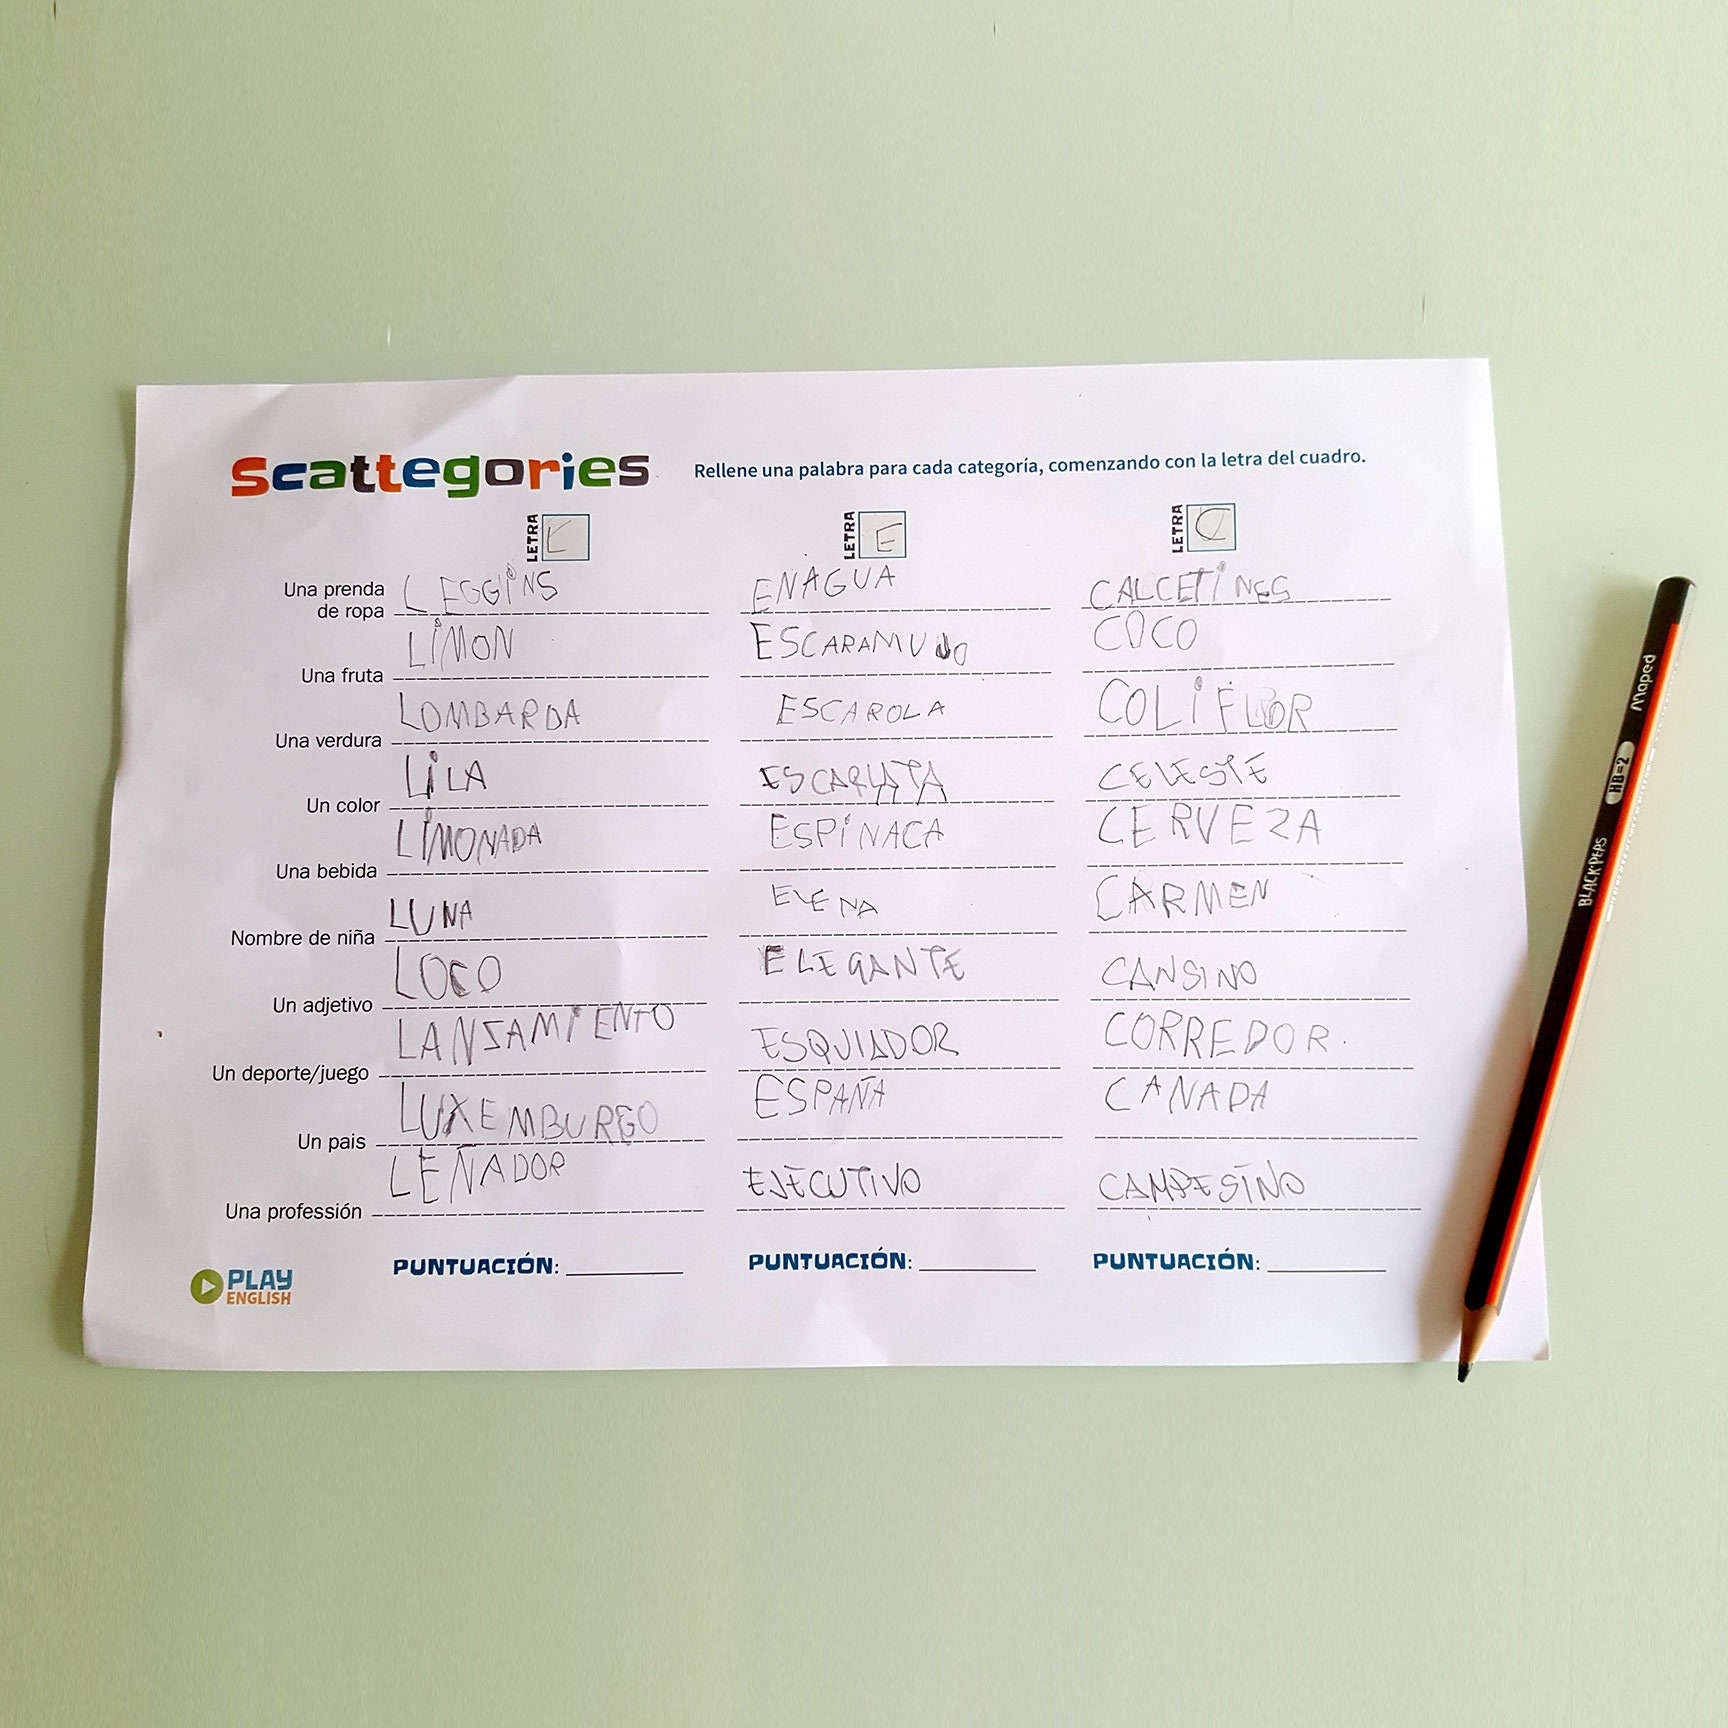 Scattegories Rellene una palabra para cada categoría, comenzando con la letra del cuadro.
LETRA L LETRA E LETRA C
Una prenda
de ropa LEGGiNS ENAGUA CALCETiNES
Una fruta LiMON ESCARAMUJO COCO
Una verdura LOMBARDA ESCAROLA COLiFLOR
Un color LiLA ESCARLATA CELESTE
Una bebida LiMONADA ESPiNACA CERVEZA
Nombre de niña LUNA ELENA CARMEN
Un adjetivo LOCO ELEGANTE CANSINO
Un deporte/juego LANSAMIENTO ESQUIADOR CORREDOR.
Un pais LUXEMBURGO ESPAÑA CANADA
Una professión LEÑADOR EJECUTIVO CAMPESINO
PUNTUACIÓN: PUNTUACIÓN: PUNTUACIÓN:
PLAY
ENGLISH
Maped
HB=2
BLACK'PEPS